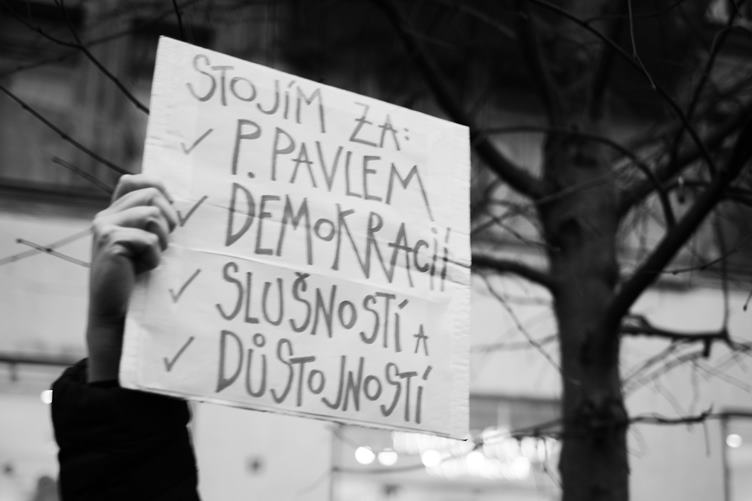 STOJÍM ZA:
✓ P. PAVLEM
✓ DEMOKRACIÍ
✓ SLUŠNOSTÍ A
✓ DŮSTOJNOSTÍ